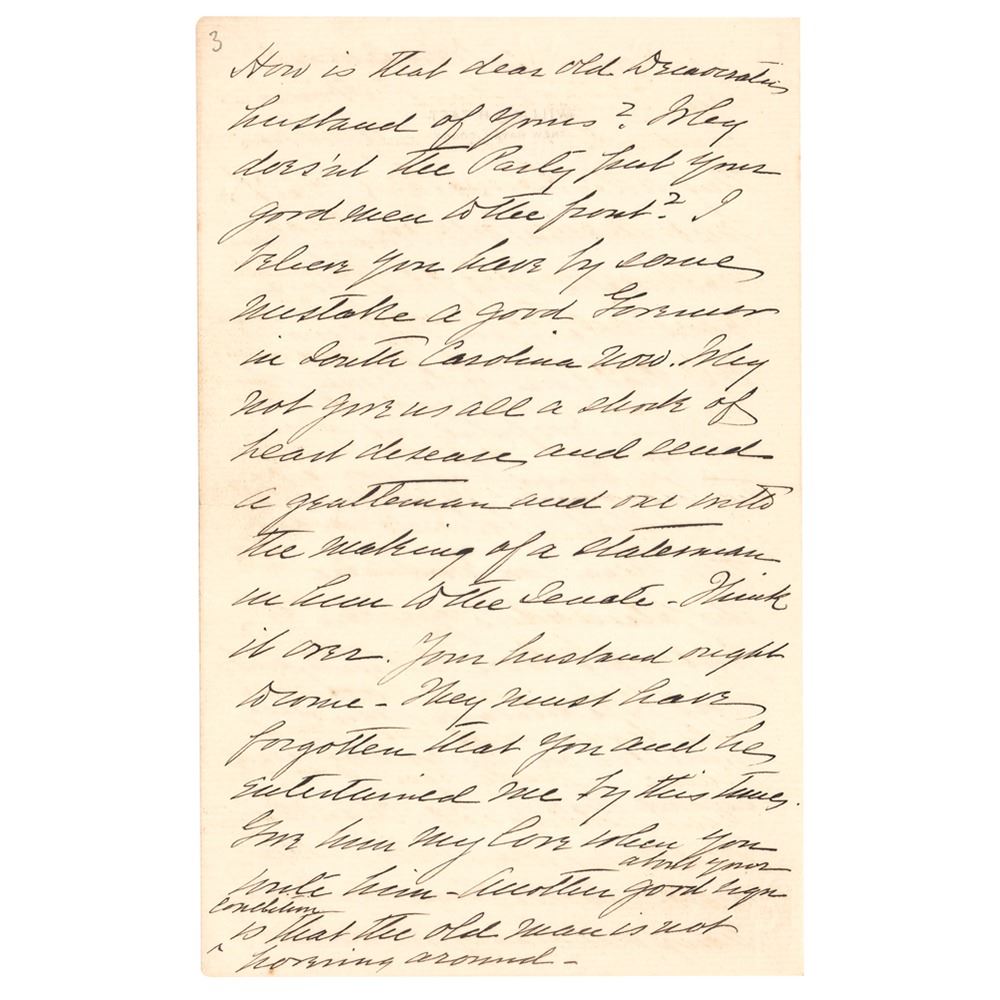 3
How is that dear old Democratic
husband of yours? Why
does'nt the Party put your
good men to the front? I
believe you have by some
mistake a good Governor
in South Carolina now. Why
not give us all a shock of
heart disease, and send
a gentleman and one with
the making of a statesman
in him to the Senate - Think
it over. Your husband ought
to come - They must have
forgotten that you and he
entertained me by this time.
Give him my love when you
write him - Another good sign
about your
condition
is that the old man is not
hovering around -